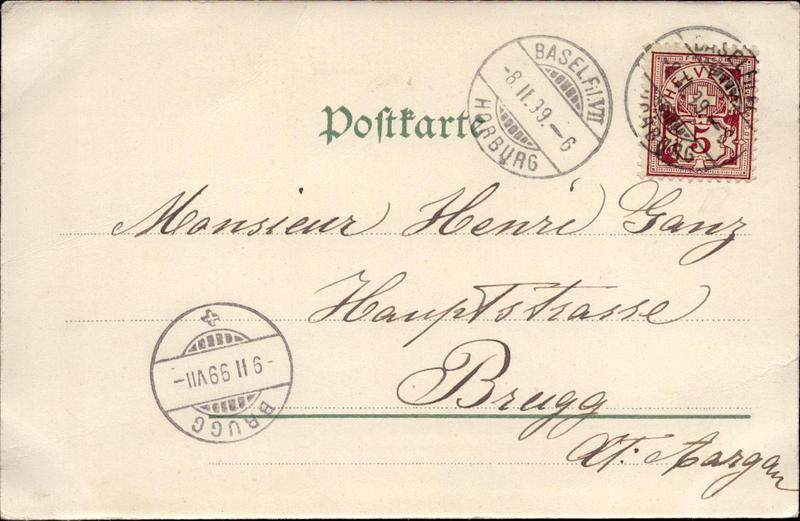 Postkarte
BASEL Fil. VII
-8.II.99.-6
HORBURG
HELVETIA
5
Monsieur Henri Ganz
Hauptstrasse
Brugg
Kt. Aargau
-9 II 99 VII-
BRUGG